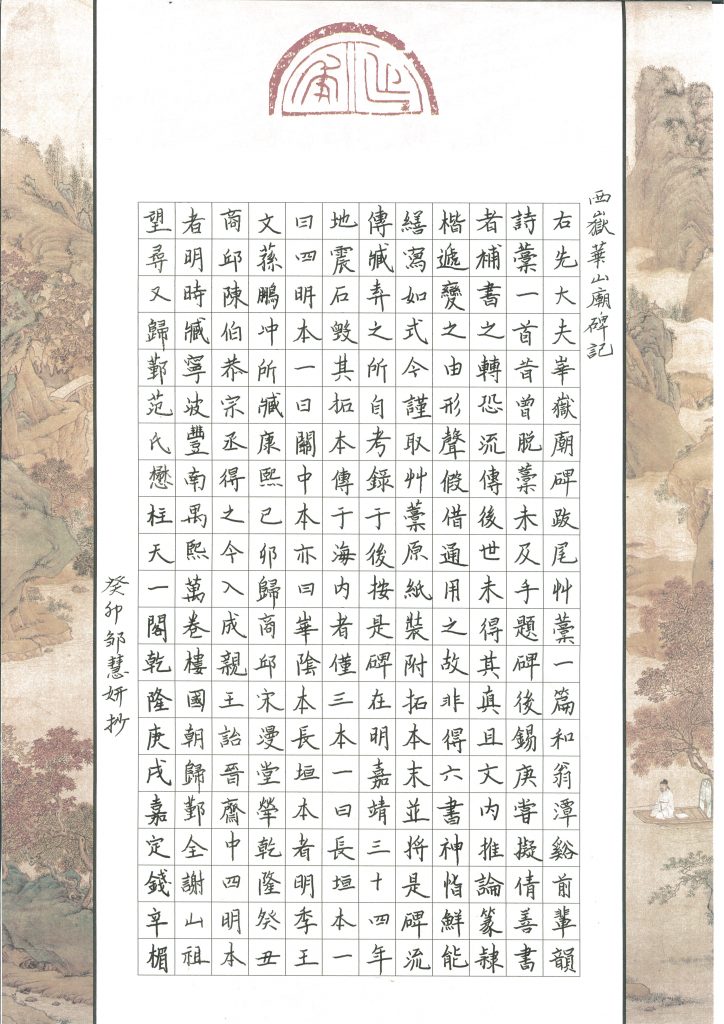 西嶽華山廟碑記
右先大夫崋嶽廟碑跋尾艸藁一篇和翁潭谿前輩韻
詩藁一首昔曾脱藁未及手題碑後錫庚嘗擬倩善書
者補書之轉恐流傳後世未得其真且文内推論篆隸
楷遞變之由形聲假借通用之故非得六書神恉鮮能
繕寫如式今謹取艸藁原紙裝附拓本末並將是碑流
傳臧弆之所自考錄于後按是碑在明嘉靖三十四年
地震石毀其拓本傳于海内者僅三本一曰長垣本一
曰四明本一曰關中本亦曰崋陰本長垣本者明季王
文蓀鵬冲所臧康熙己卯歸商邱宋漫堂犖乾隆癸丑
商邱陳伯恭宗丞得之今入成親王詒晉齋中四明本
者明時臧寧波豐南禺熙萬卷樓國朝歸鄞全謝山祖
望尋又歸鄞范氏懋柱天一閣乾隆庚戌嘉定錢辛楣
癸卯邹慧妍抄